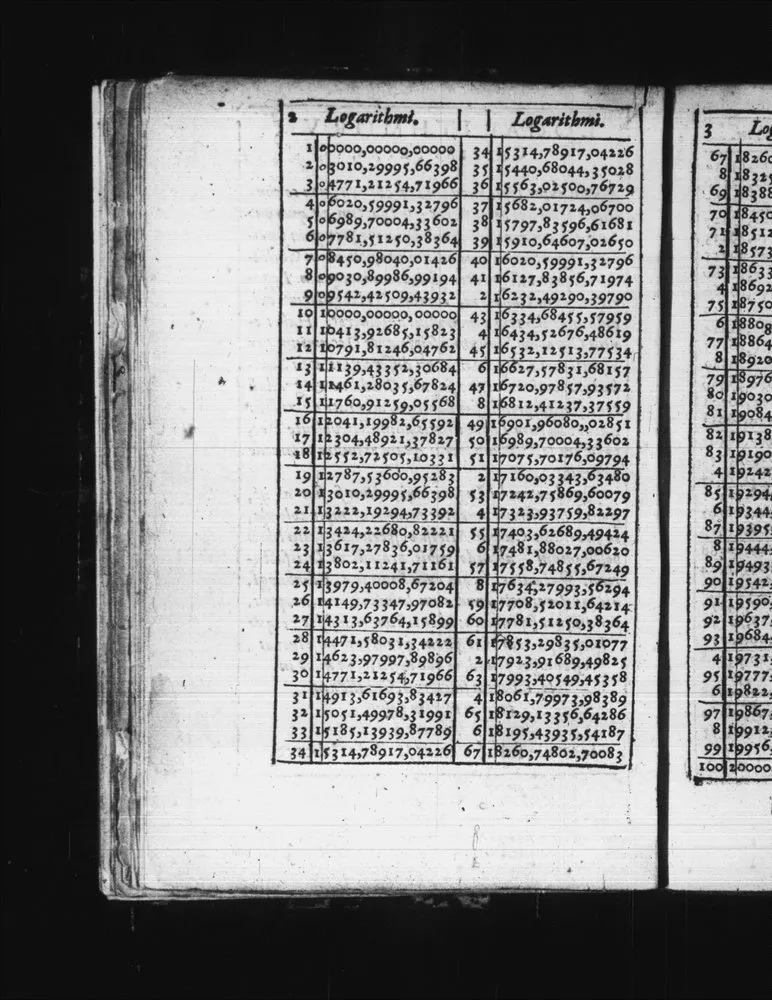 2 Logarithmi.
1 00000,00000,00000
2 03010,29995,66398
3 04771,21254,71966
4 06020,59991,32796
5 06989,70004,33602
6 07781,51250,38364
7 08450,98040,01426
8 09030,89986,99194
9 09542,42509,43932
10 10000,00000,00000
11 10413,92685,15823
12 10791,81246,04762
13 11139,43352,30684
14 11461,28035,67824
15 11760,91259,05568
16 12041,19982,65592
17 12304,48921,37827
18 12552,72505,10331
19 12787,53600,95283
20 13010,29995,66398
21 13222,19294,73392
22 13424,22680,82221
23 13617,27836,01759
24 13802,11241,71161
25 13979,40008,67204
26 14149,73347,97082
27 14313,63764,15899
28 14471,58031,34222
29 14623,97997,89896
30 14771,21254,71966
31 14913,61693,83427
32 15051,49978,31991
33 15185,13939,87789
34 15314,78917,04226
Logarithmi.
34 15314,78917,04226
35 15440,68044,35028
36 15563,02500,76729
37 15682,01724,06700
38 15797,83596,61681
39 15910,64607,02650
40 16020,59991,32796
41 16127,83856,71974
2 16232,49290,39790
43 16334,68455,57959
4 16434,52676,48619
45 16532,12513,77534
6 16627,57831,68157
47 16720,97857,93572
8 16812,41237,37559
49 16901,96080,,02851
50 16989,70004,33602
51 17075,70176,09794
2 17160,03343,63480
53 17242,75869,60079
4 17323,93759,82297
55 17403,62689,49424
6 17481,88027,00620
57 17558,74855,67249
8 17634,27993,56294
59 17708,52011,64214
60 17781,51250,38364
61 17853,29835,01077
2 17923,91689,49825
63 17993,40549,45358
4 18061,79973,98389
65 18129,13356,64286
6 18195,43935,54187
67 18260,74802,70083
3 Log
67 18260
8 18325
69 18388
70 18450
71 18512
2 18573
73 18633
4 18692
75 18750
6 18808
77 18864
8 18920
79 18976
80 19030
81 19084
82 19138
83 19190
4 19242
85 19294
6 19344
87 19395
8 19444
89 19493
90 19542
91 19590
92 19637
93 19684
4 19731
95 19777
6 19822
97 19867
8 19912
99 19956
100 20000